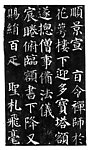 順景宣旨令禪師於
花萼樓下迎多寶塔額
遂揔僧事備法儀
宸睠俯臨額書下降又
賜絹百疋聖札飛毫